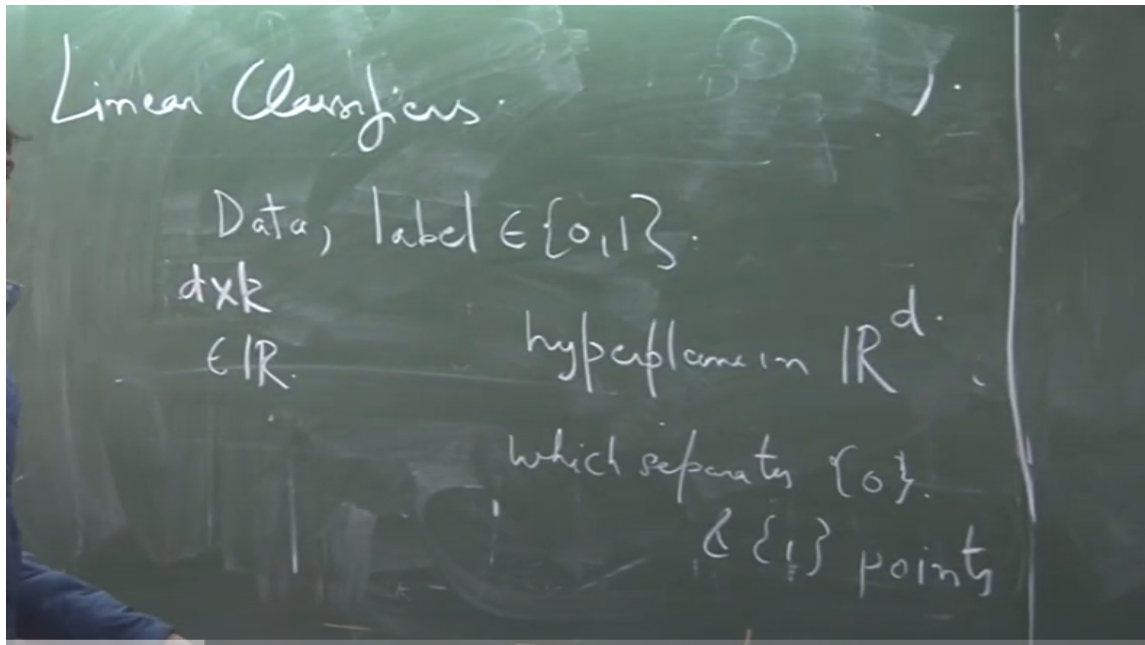 Linear Classifiers.
Data, label ∈ {0,1}.
d×k
∈ IR.
hyperplane in IR^d.
which separates {0}.
& {1} points